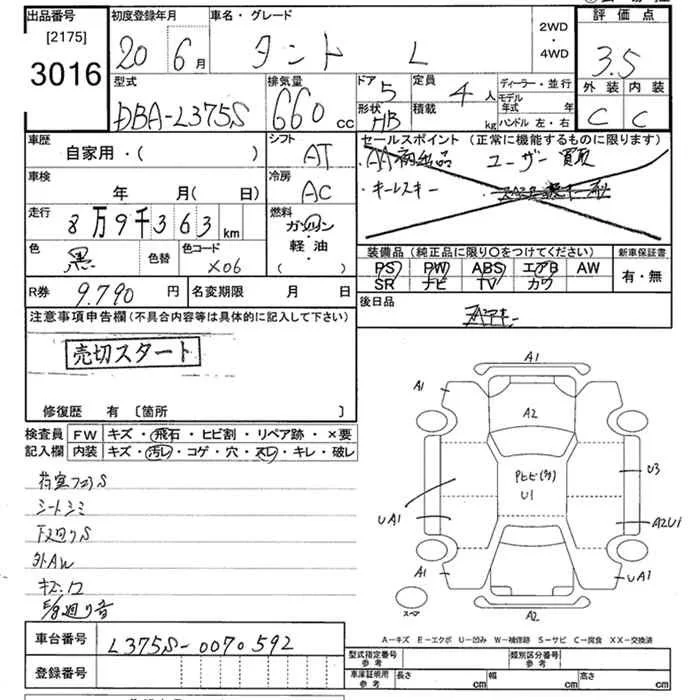 出品番号
[2175]
3016
初度登録年月
20 6月
車名・グレード
タント L
2WD
・
4WD
評価点
3.5
型式
DBA-L375S
排気量
660 cc
ドア
5
定員
4人
ディーラー・並行
モデル年式 年
外装 内装
C C
形状
HB
積載
kg
ハンドル 左・右
車歴
自家用・( )
シフト
AT
セールスポイント (正常に機能するものに限ります)
ユーザー買取
・キーレスキー
車検
年 月( 日)
冷房
AC
走行
8万9千363km
燃料
ガソリン
・
軽・油
( )
色
黒
色替
色コード
X06
装備品(純正品に限り〇をつけてください)
新車保証書
PS PW ABS エアB AW
SR ナビ TV カワ
有・無
R券
9.790円
名変期限 月 日
後日品
注意事項申告欄(不具合内容等は具体的に記入して下さい)
売切スタート
修復歴 有 〔箇所 〕
検査員記入欄
FW キズ・飛石・ヒビ割・リペア跡・×要
内装 キズ・汚レ・コゲ・穴・スレ・キレ・破レ
シートシミ
下廻りS
外AW
キズ・凹
A1
A1
A2
U3
U1
UA1
A2U1
A1
UA1
スペア
A2
A-キズ E-エクボ U-凹み W-補修跡 S-サビ C-腐食 XX-交換済
車台番号
L375S-0070592
登録番号
型式指定番号
参考
類別区分番号
参考
車庫証明用
参考
長さ cm
幅 cm
高さ cm